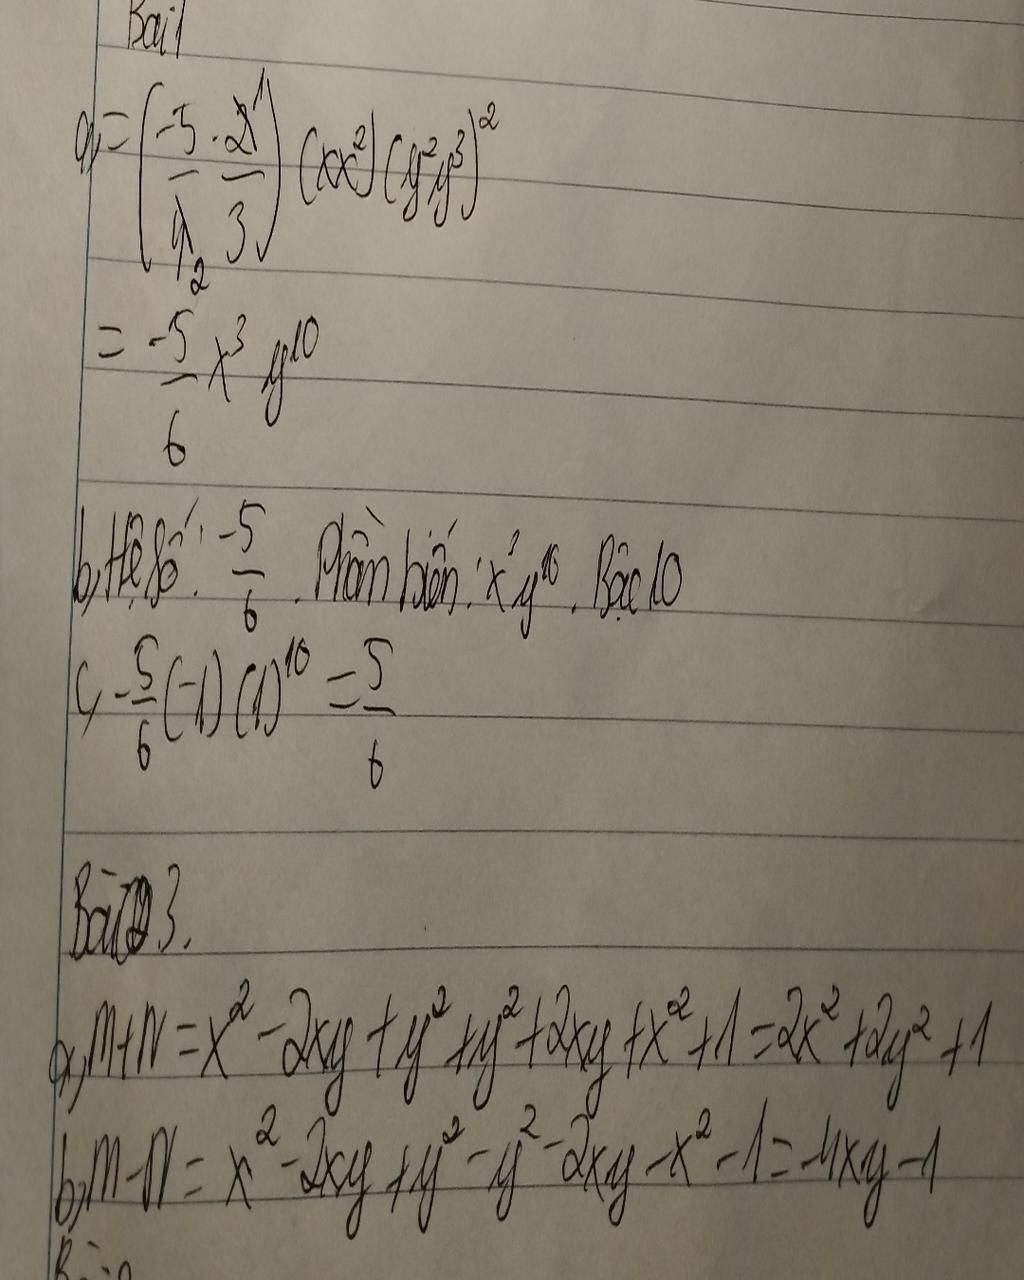 Bài 1
a, = (-5/4 2 · 2 1/3) (xx²) (y²y³)²
= -5/6 x³ y¹⁰
b, Hệ số: -5/6. Phần biến: x³y¹⁰. Bậc 10
c, -5/6 (-1) (1)¹⁰ = 5/6
Bài 3.
a, M+N = x² - 2xy + y² + y² + 2xy + x² + 1 = 2x² + 2y² + 1
b, M-N = x² - 2xy + y² - y² - 2xy - x² - 1 = -4xy - 1